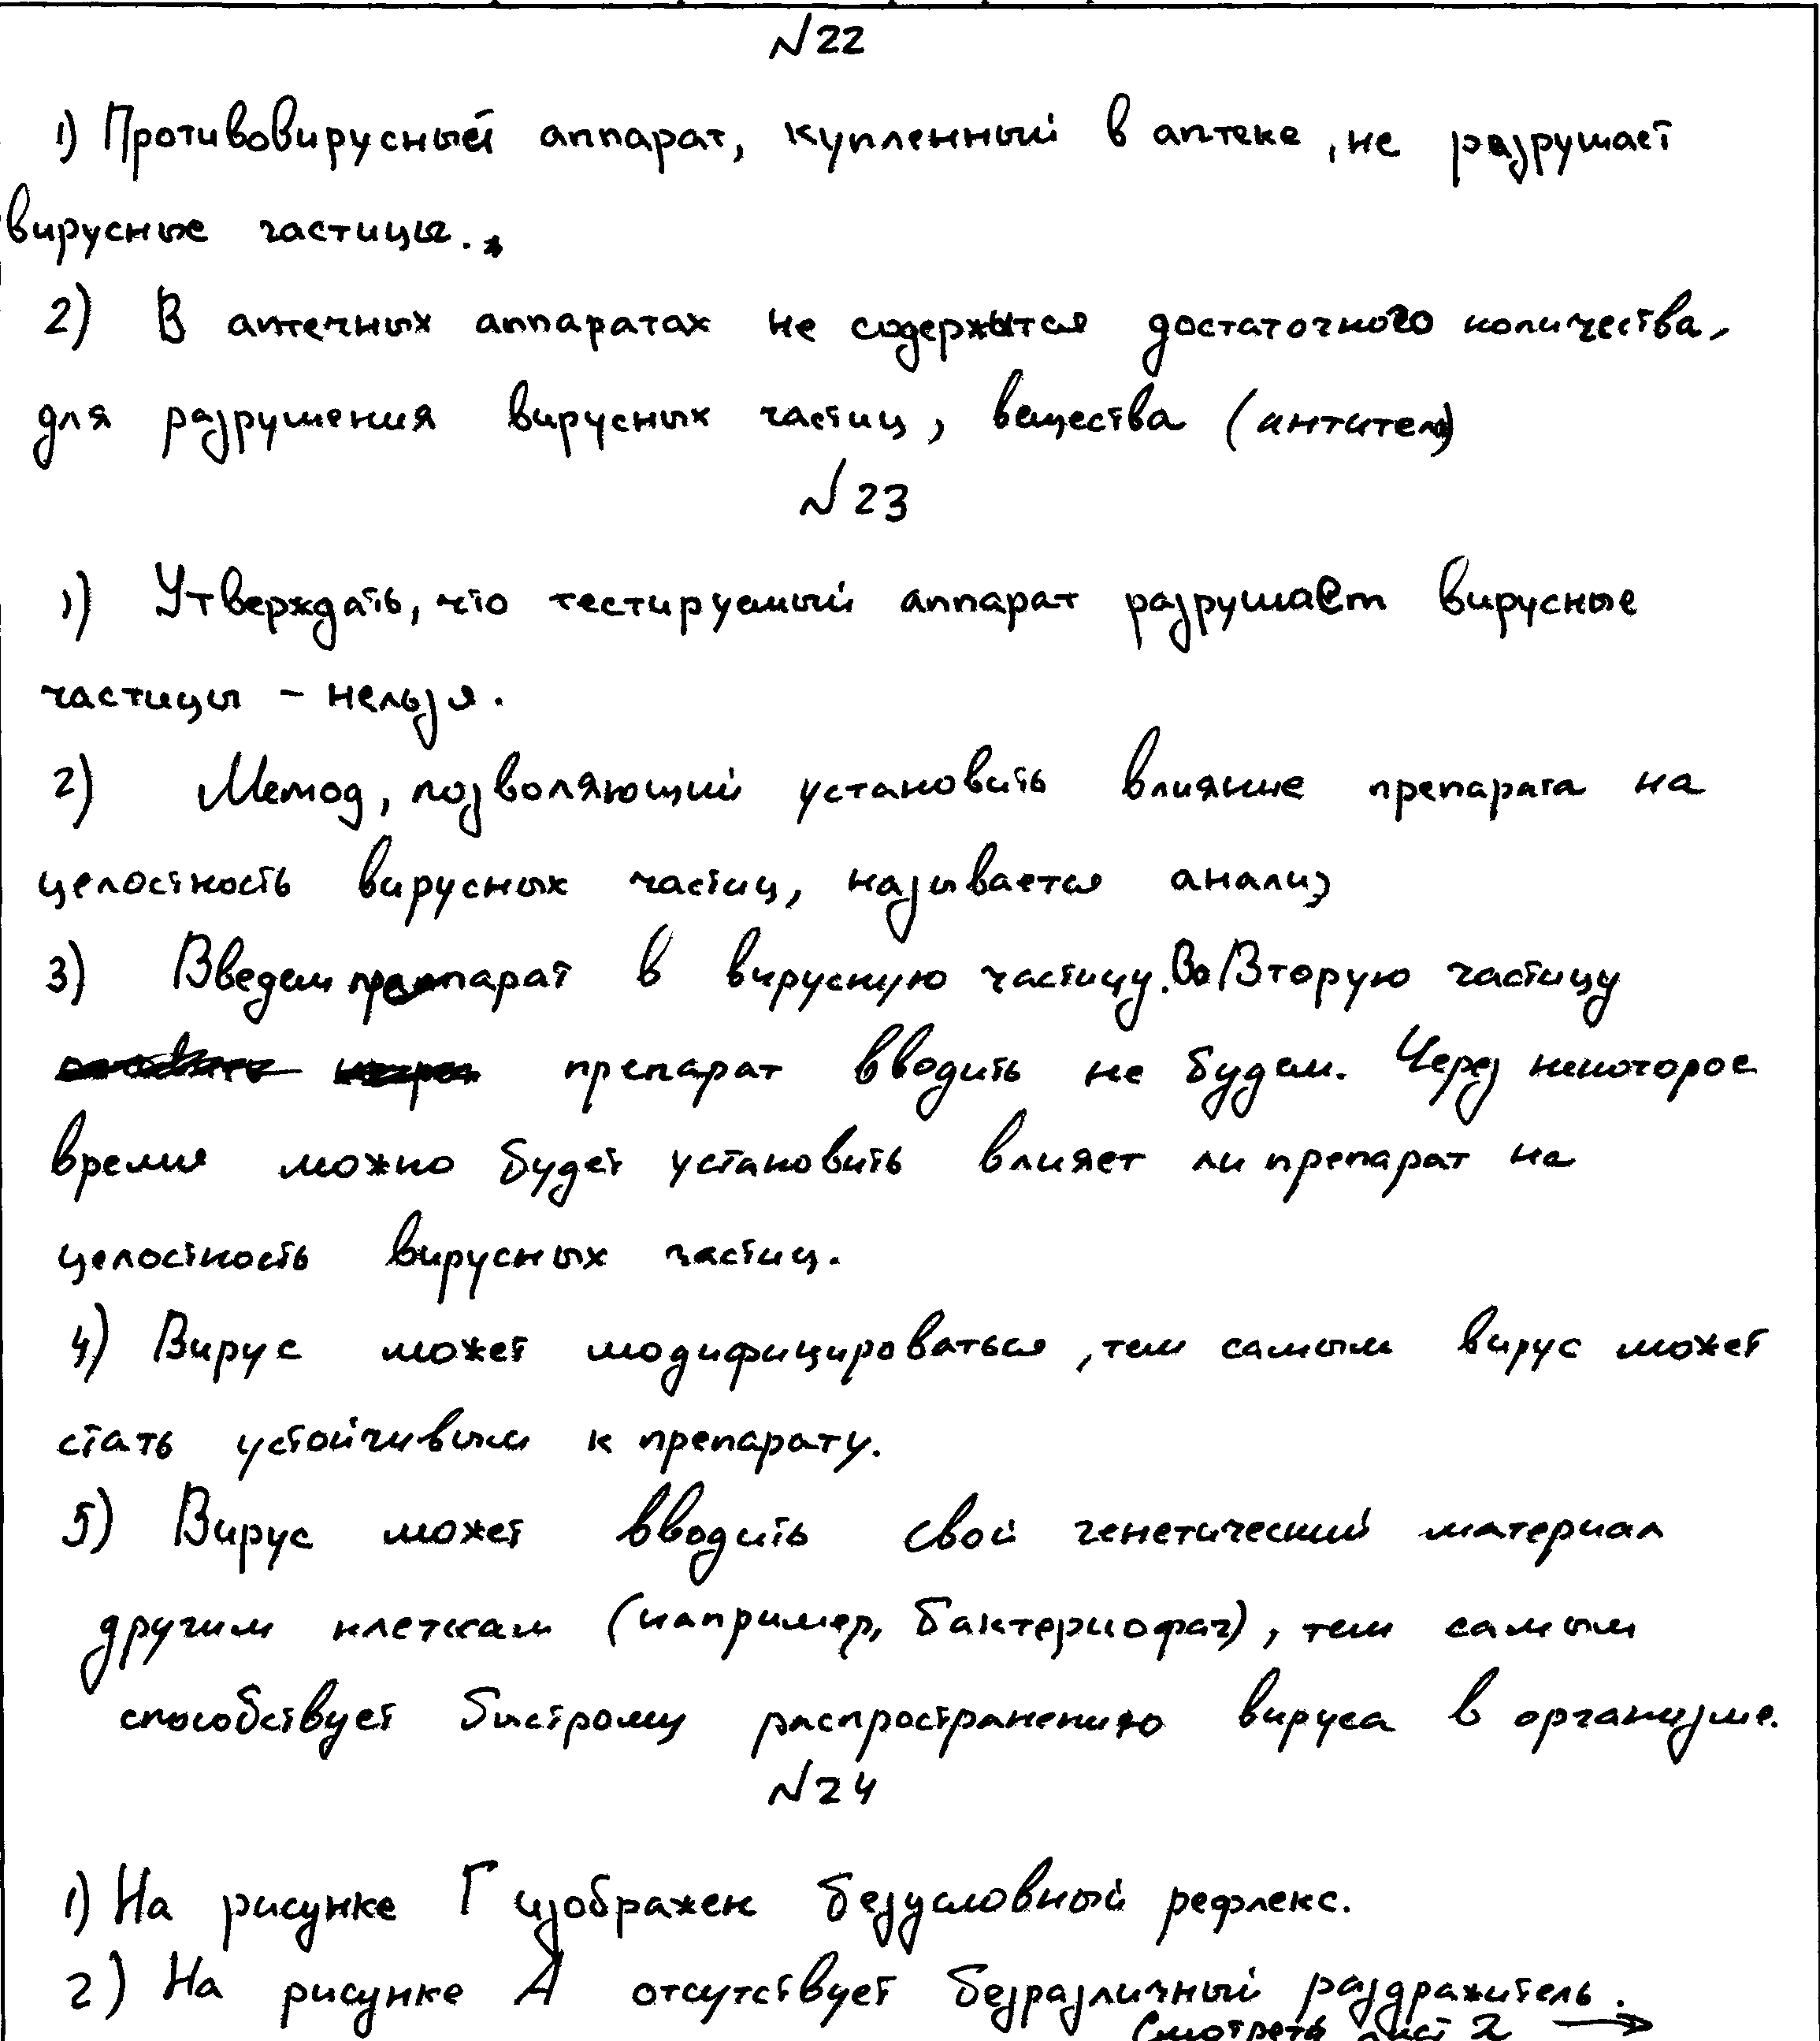 №22
1) Противовирусный аппарат, купленный в аптеке, не разрушает
вирусные частицы.
2) В аптечных аппаратах не содержится достаточного количества,
для разрушения вирусных частиц, вещества (антитела)
№23
1) Утверждать, что тестируемый аппарат разрушает вирусные
частицы - нельзя.
2) Метод, позволяющий установить влияние препарата на
целостность вирусных частиц, называется анализ
3) Введем препарат в вирусную частицу. Во Вторую частицу
препарат вводить не будем. Через некоторое
время можно будет установить влияет ли препарат на
целостность вирусных частиц.
4) Вирус может модифицироваться, тем самым вирус может
стать устойчивым к препарату.
5) Вирус может вводить свой генетический материал
другим клеткам (например, бактериофаг), тем самым
способствует быстрому распространению вируса в организме.
№24
1) На рисунке Г изображен безусловный рефлекс.
2) На рисунке А отсутствует безразличный раздражитель.
Смотреть лист 2 →